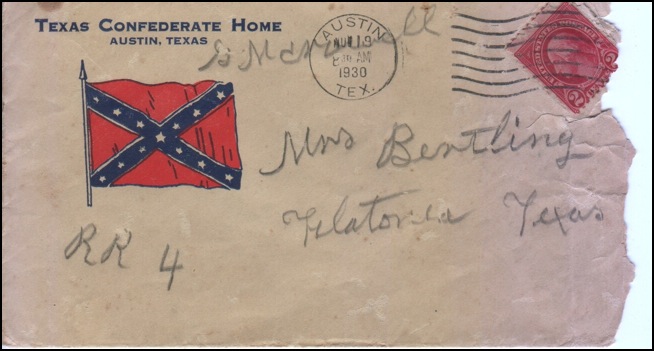 TEXAS CONFEDERATE HOME
AUSTIN, TEXAS
AUSTIN
9
AM
1930
TEX.
2
Mrs Bentling
Flatonia Texas
RR 4